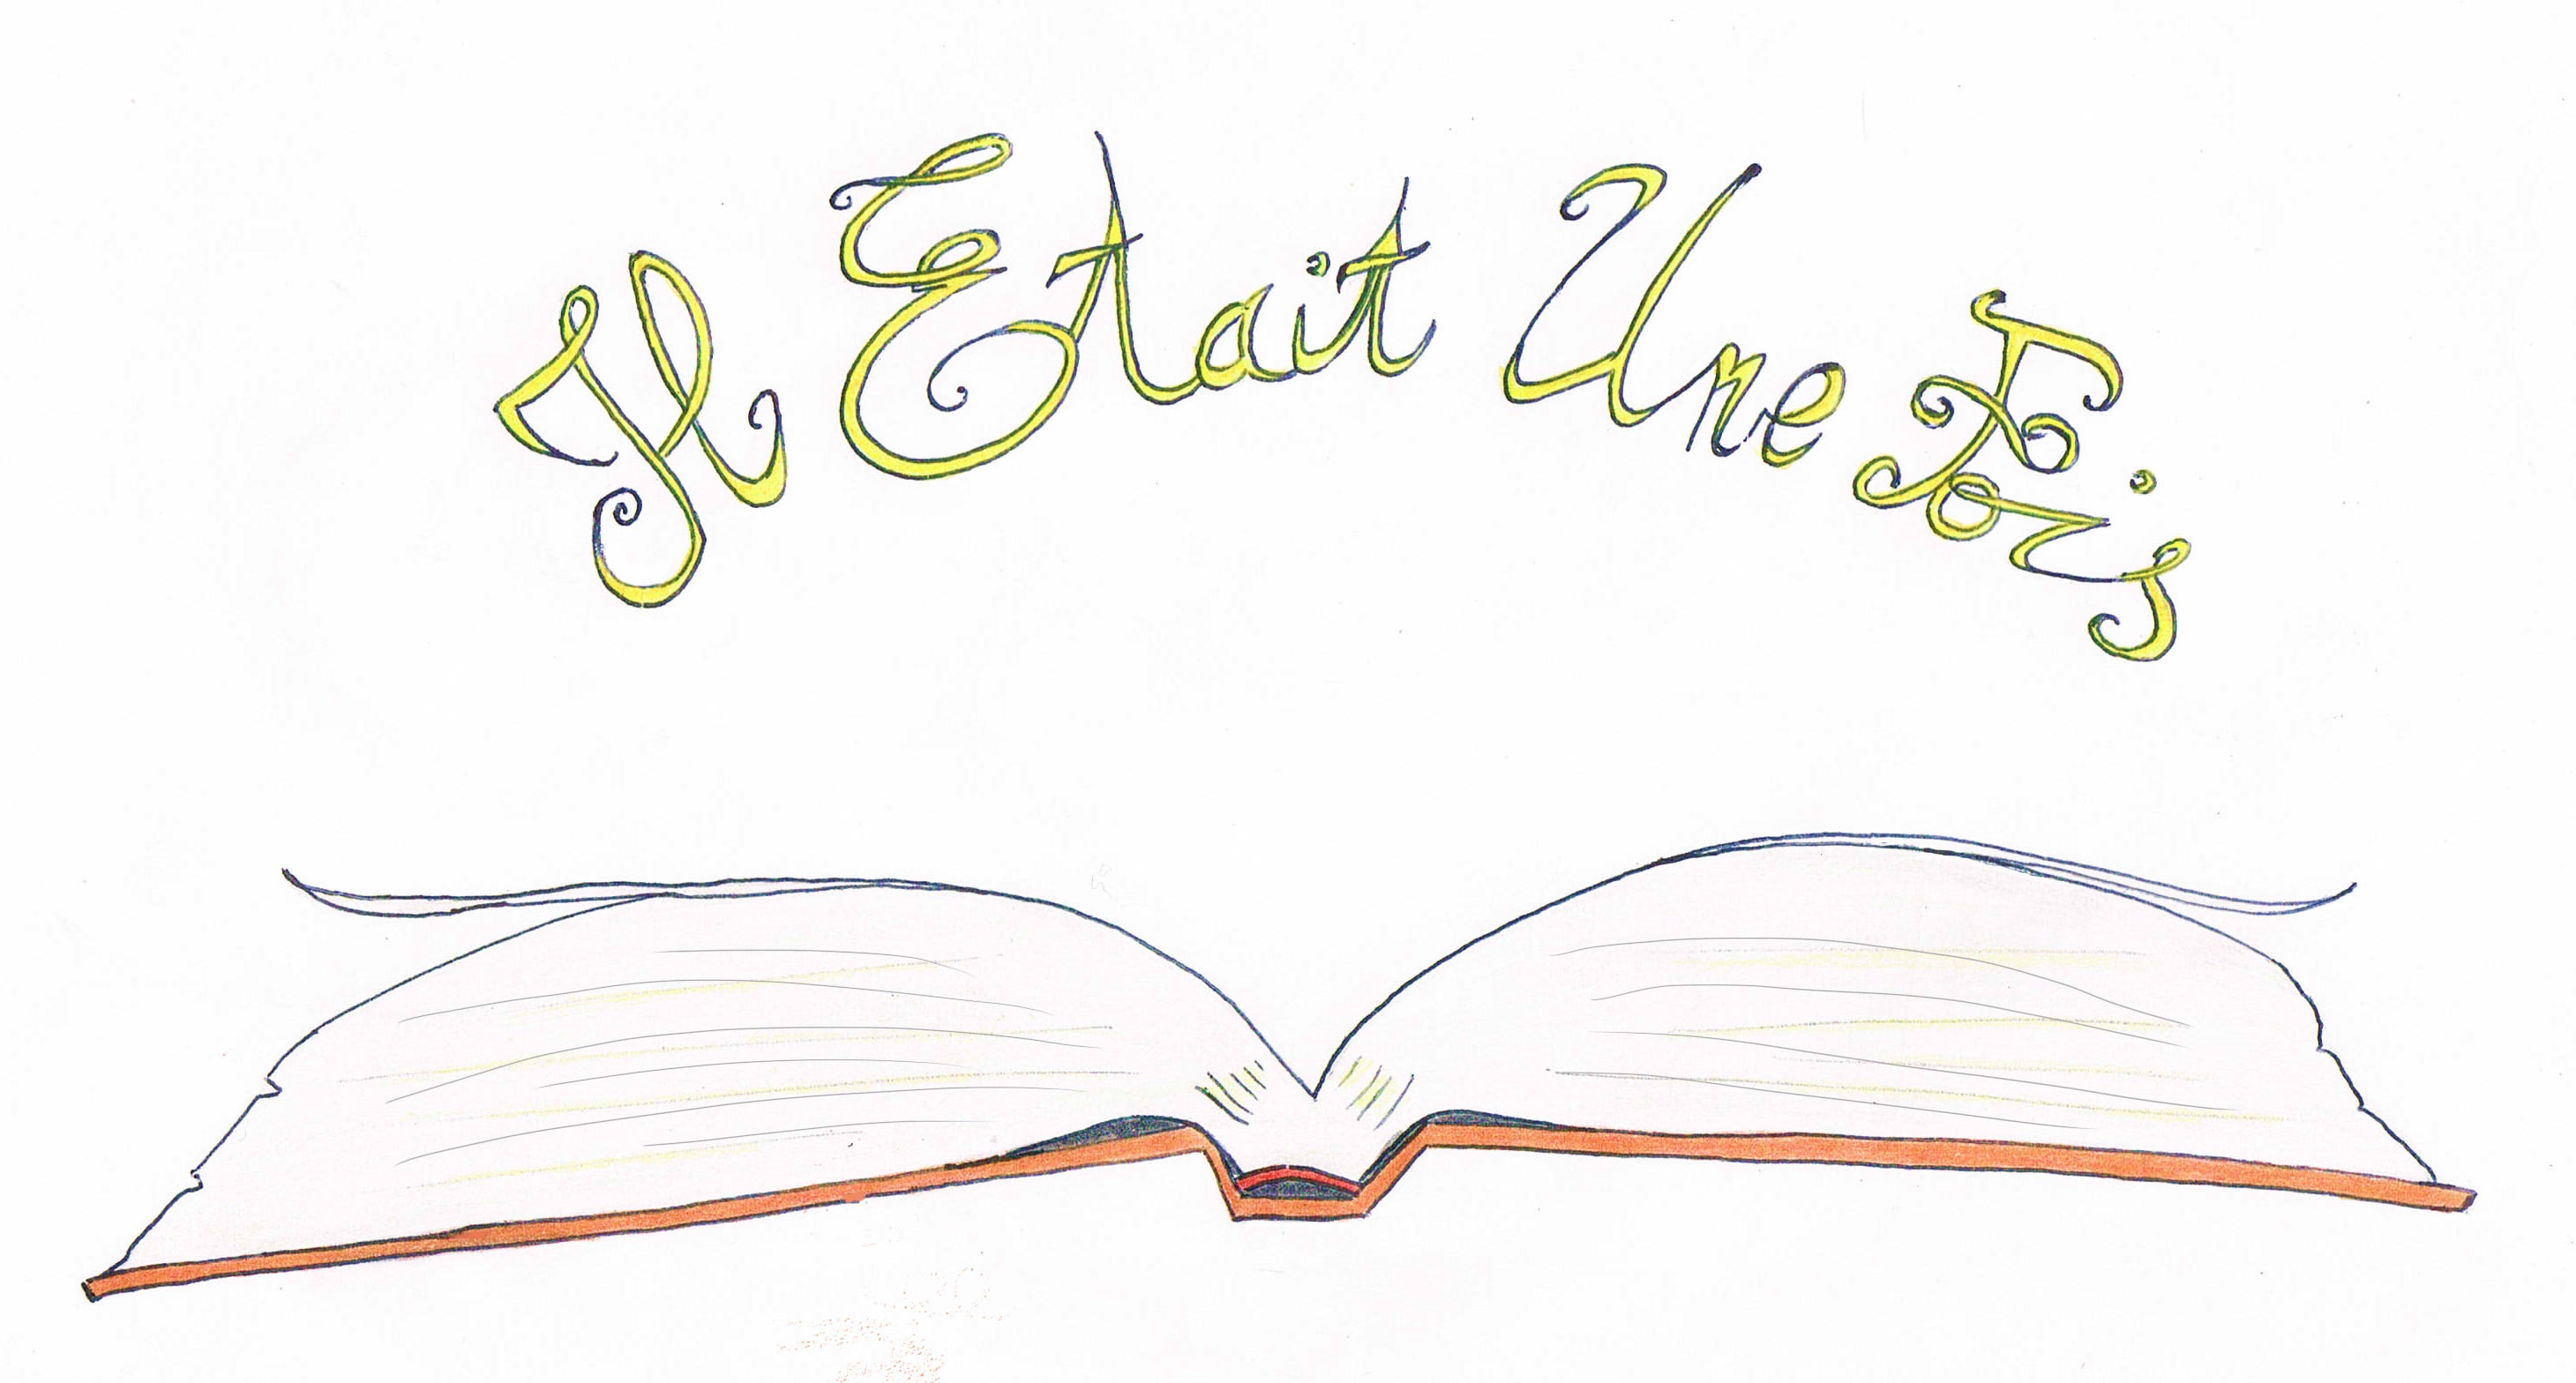 Il Etait Une Fois